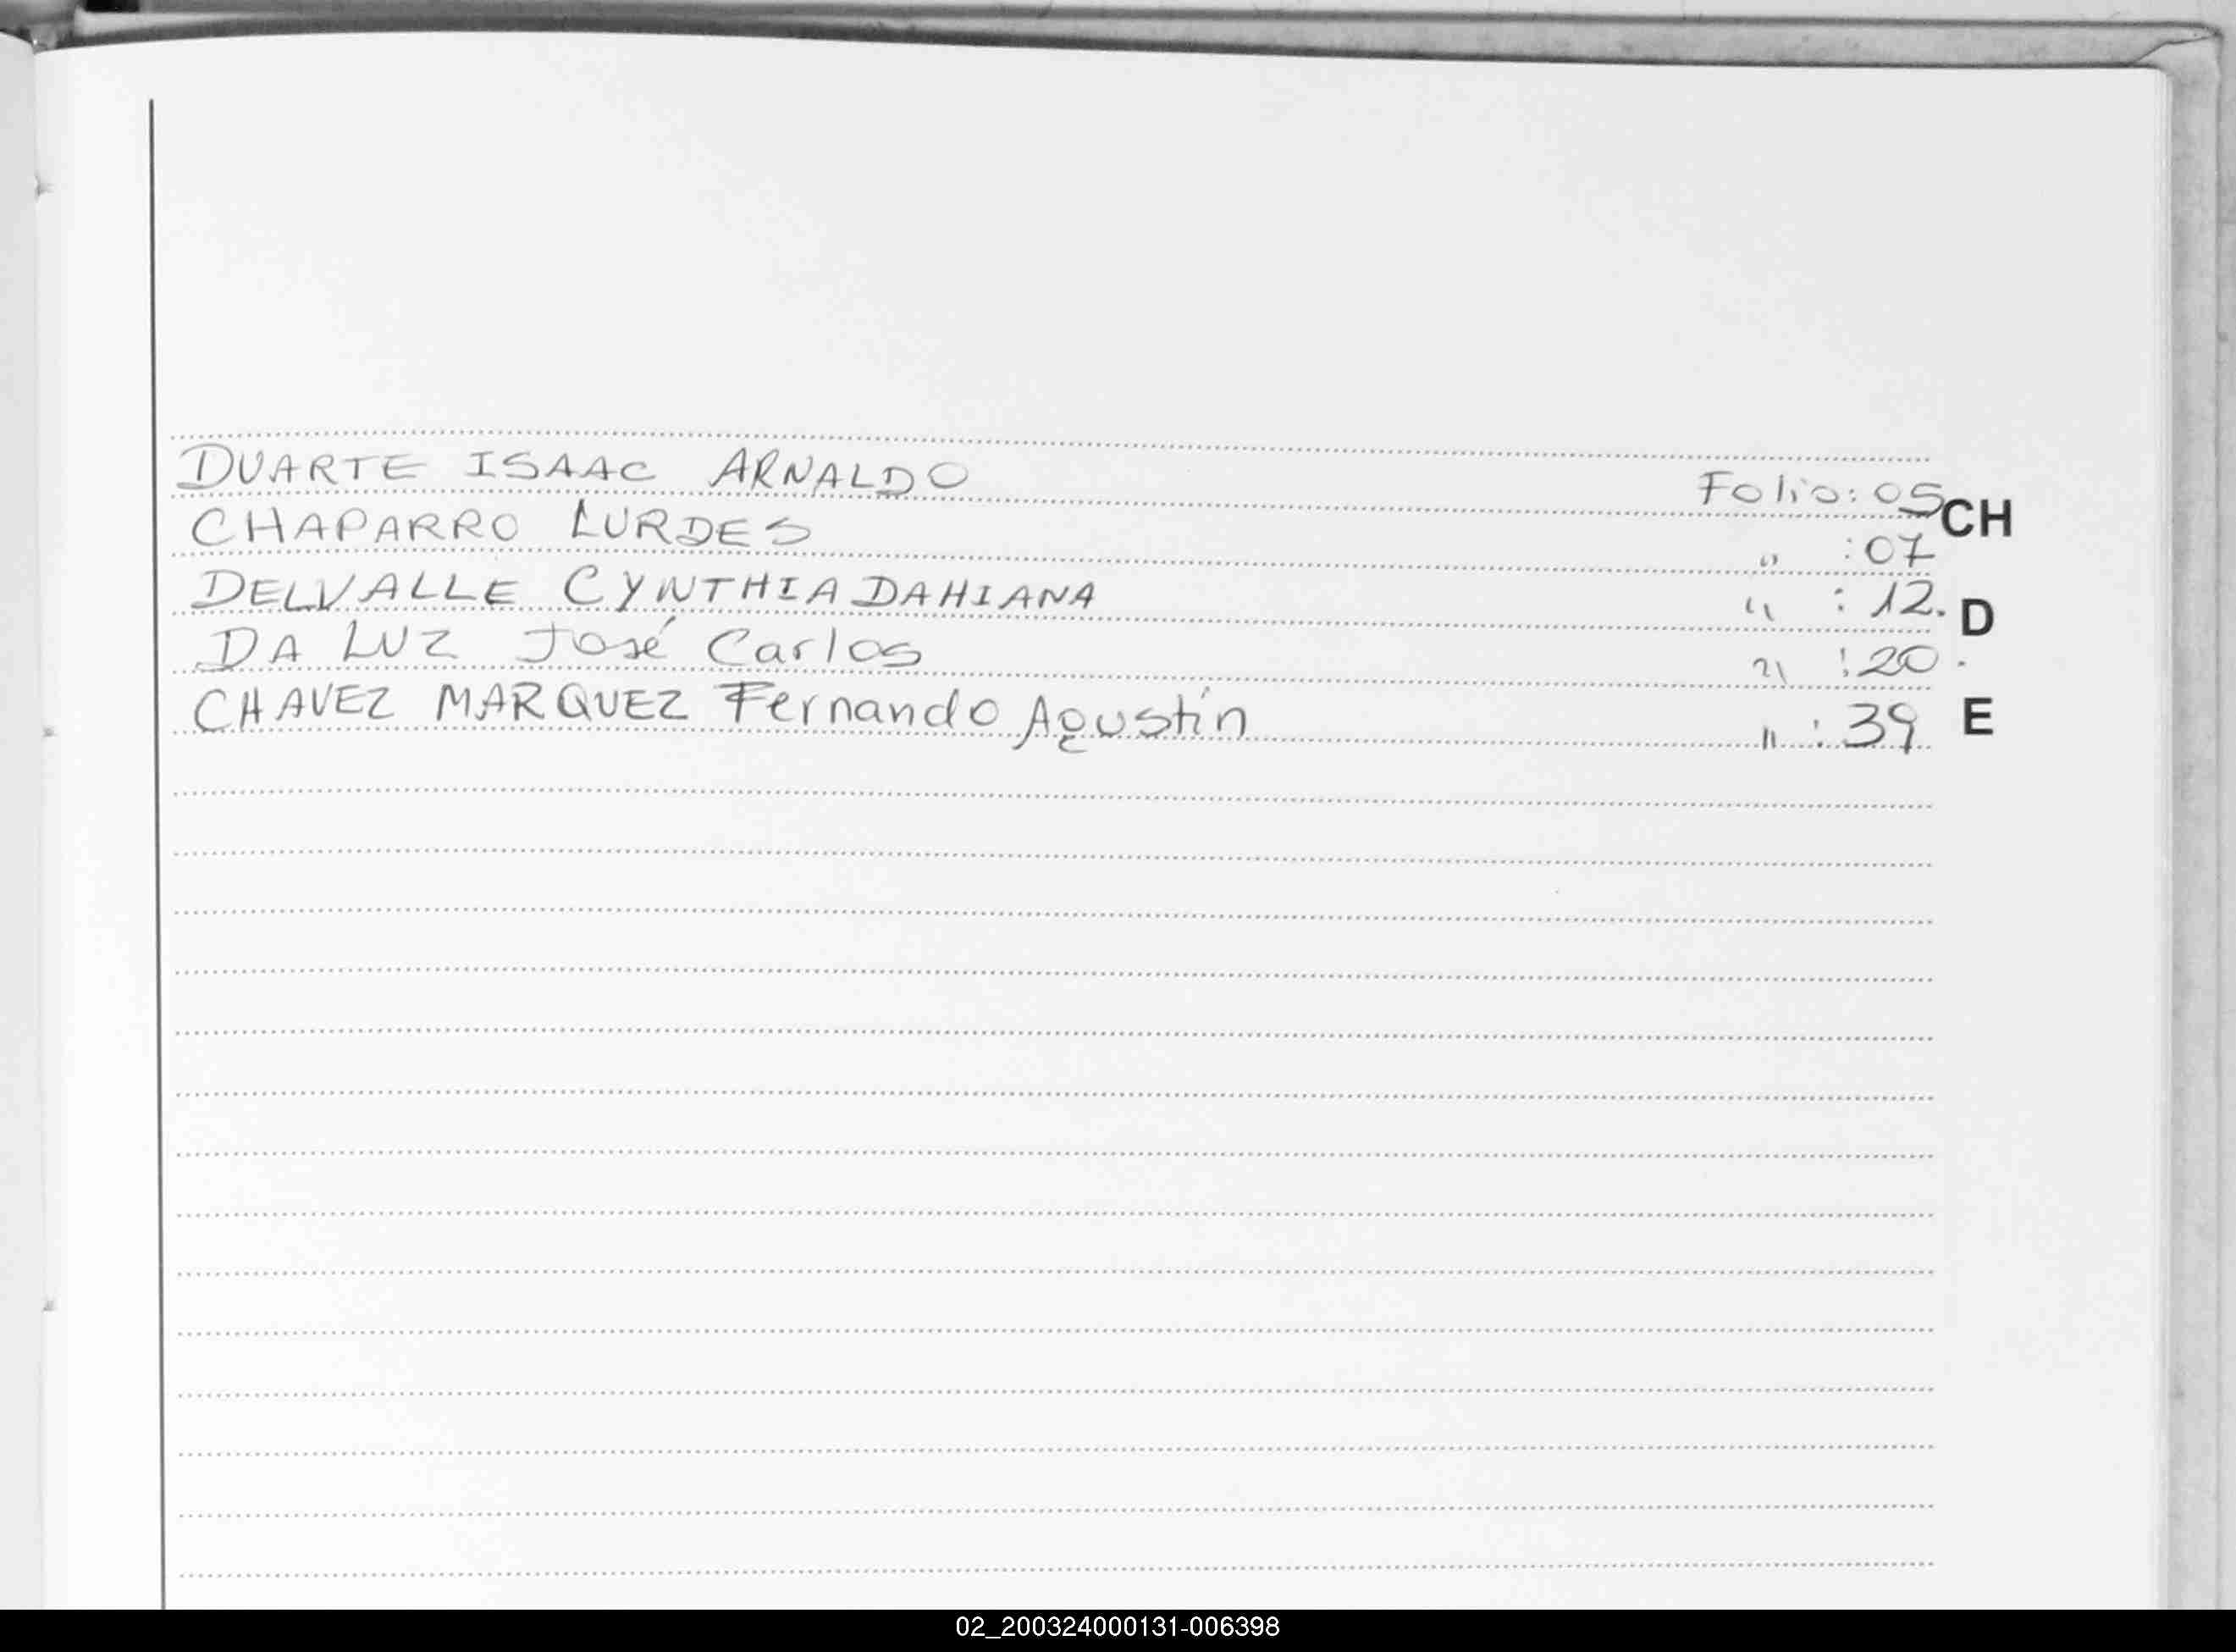 DUARTE ISAAC ARNALDO Folio: 05
CH
CHAPARRO LURDES " : 07
DELVALLE CYNTHIA DAHIANA " : 12.
D
DA LUZ José Carlos " : 20.
CHAVEZ MARQUEZ Fernando Agustín " : 39
E
02_200324000131-006398